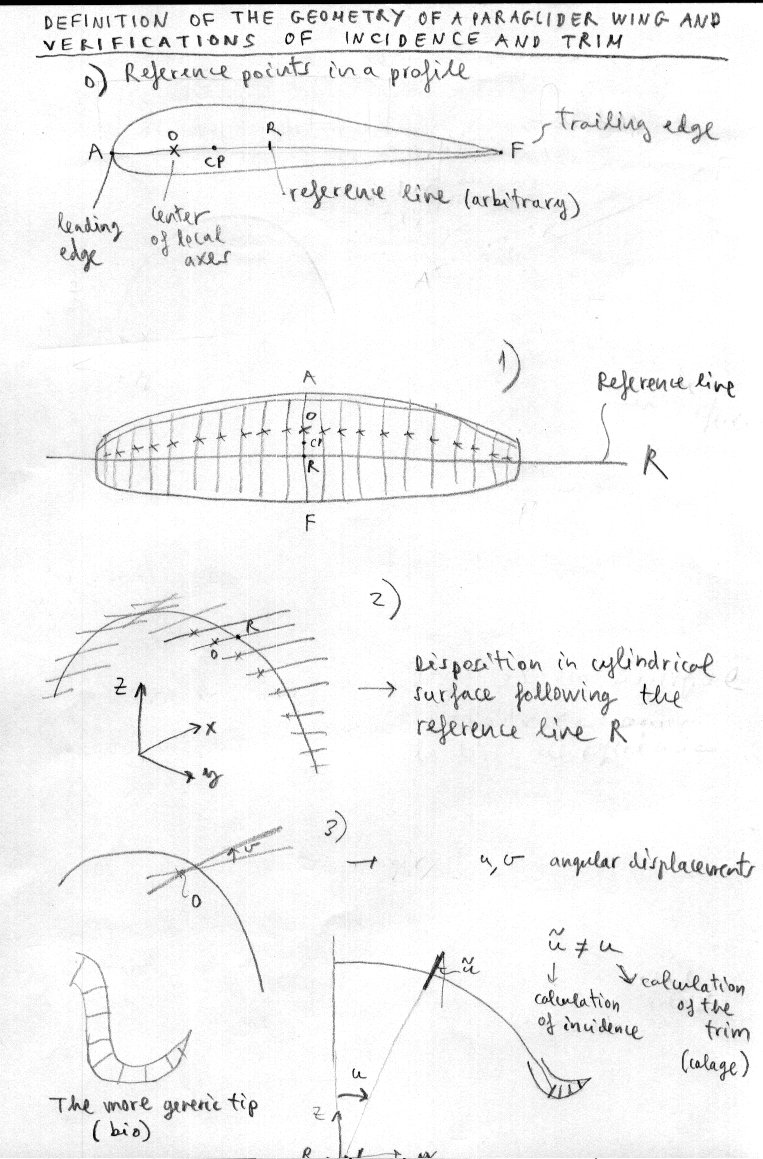 DEFINITION OF THE GEOMETRY OF A PARAGLIDER WING AND
VERIFICATIONS OF INCIDENCE AND TRIM
0) Reference points in a profile
A
O
CP
R
F
trailing edge
reference line (arbitrary)
leading
edge
center
of local
axes
1)
A
O
CP
R
F
Reference line
R
2)
R
O
Z
x
y
→ Disposition in cylindrical
surface following the
reference line R
3)
v
O
→ u, v angular displacements
ũ
ũ ≠ u
calculation
of incidence
calculation
of the
trim
(calage)
u
Z
The more generic tip
(bio)